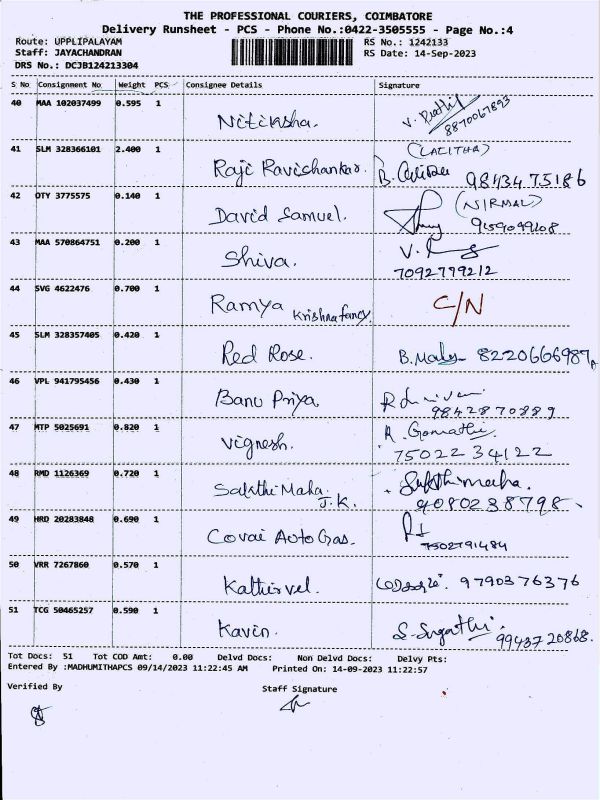 THE PROFESSIONAL COURIERS, COIMBATORE
Delivery Runsheet - PCS - Phone No.:0422-3505555 - Page No.:4
Route: UPPLIPALAYAM RS No.: 1242133
Staff: JAYACHANDRAN RS Date: 14-Sep-2023
DRS No.: DCJB124213304
S No Consignment No Weight PCS Consignee Details Signature
40 MAA 102037499 0.595 1 Nitiksha. V. 8870067893
(LALITHA)
41 SLM 328366101 2.400 1 Raji Ravishankar. B. 98434 75186
42 OTY 3775575 0.140 1 David Samuel. (NIRMAL)
43 MAA 570864751 0.200 1 Shiva. V.
7092779212
44 SVG 4622476 0.700 1 Ramya Krishna fancy. C/N
45 SLM 328357405 0.420 1 Red Rose. B. 8220606987
46 VPL 941795456 0.430 1 Banu Priya
9842870889
47 MTP 5025691 0.820 1 Vignesh. R. Gomathi.
75022 34122
48 RMD 1126369 0.720 1 Sakthi Maha. J.K. Sakthimaha.
9080238798
49 HRD 20283848 0.690 1 Covai Auto Gas.
7502791484
50 VRR 7267860 0.570 1 Kathirvel. 9790376376
51 TCG 50465257 0.590 1 Kavin. S. Sugathi.
99437 20868.
Tot Docs: 51 Tot COD Amt: 0.00 Delvd Docs: Non Delvd Docs: Delvy Pts:
Entered By :MADHUMITHAPCS 09/14/2023 11:22:45 AM Printed On: 14-09-2023 11:22:57
Verified By Staff Signature